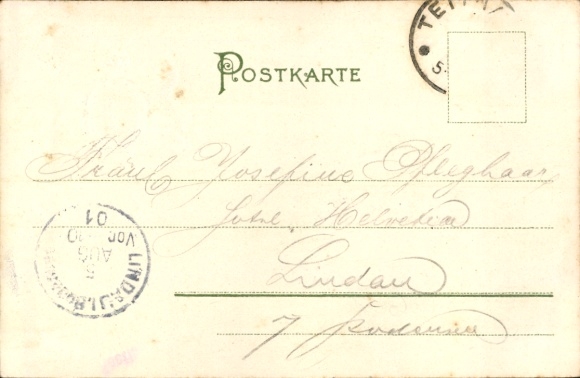 POSTKARTE
TETTN
5
Fräul Josefine Pfleghaar
Hotel Helvetia
Lindau
Bodensee
LINDAU
5
AUG
Vor
01